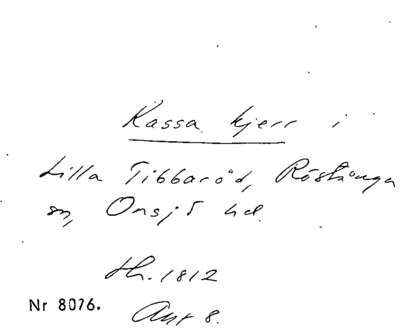 Kassa kjerr i
Lilla Tibbaröd, Röstånga
sn, Onsjö hd.
Hh. 1812
Ant 8.
Nr 8076.